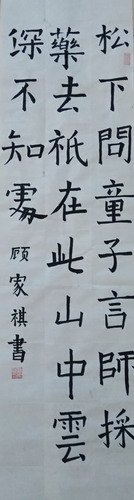 松下問童子言師採
藥去祇在此山中雲
深不知處
顧家祺書